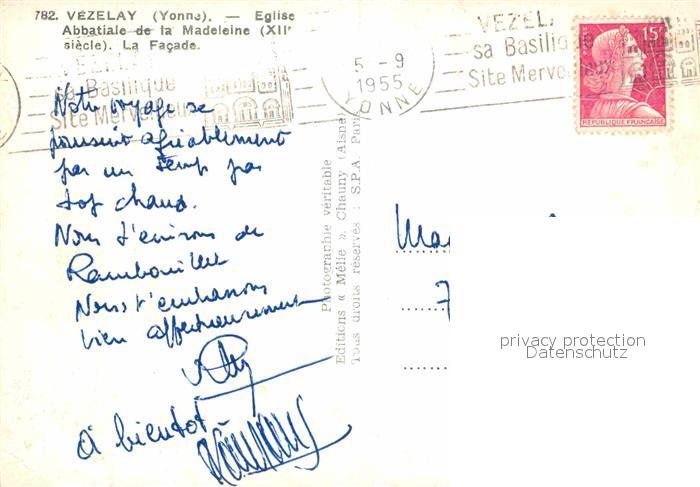 782. VÉZELAY (Yonne). — Eglise
Abbatiale de la Madeleine (XIIe
siècle). La Façade.
VEZELAY
sa Basilique
Site Merveilleux
5 - 9
1955
YONNE
VEZELA
sa Basiliq
Site Merveilleux
15F
POSTES
REPUBLIQUE FRANÇAISE
Notre voyage se
poursuit agréablement
par un temps pas
trop chaud.
Nous t'écrirons de
Rambouillet
Nous t'embrassons
bien affectueusement
à bientôt
Photographie véritable
Editions « Mélie ». Chauny (Aisne)
Tous droits réservés : S.P.A. Paris
Ma
7
privacy protection
Datenschutz